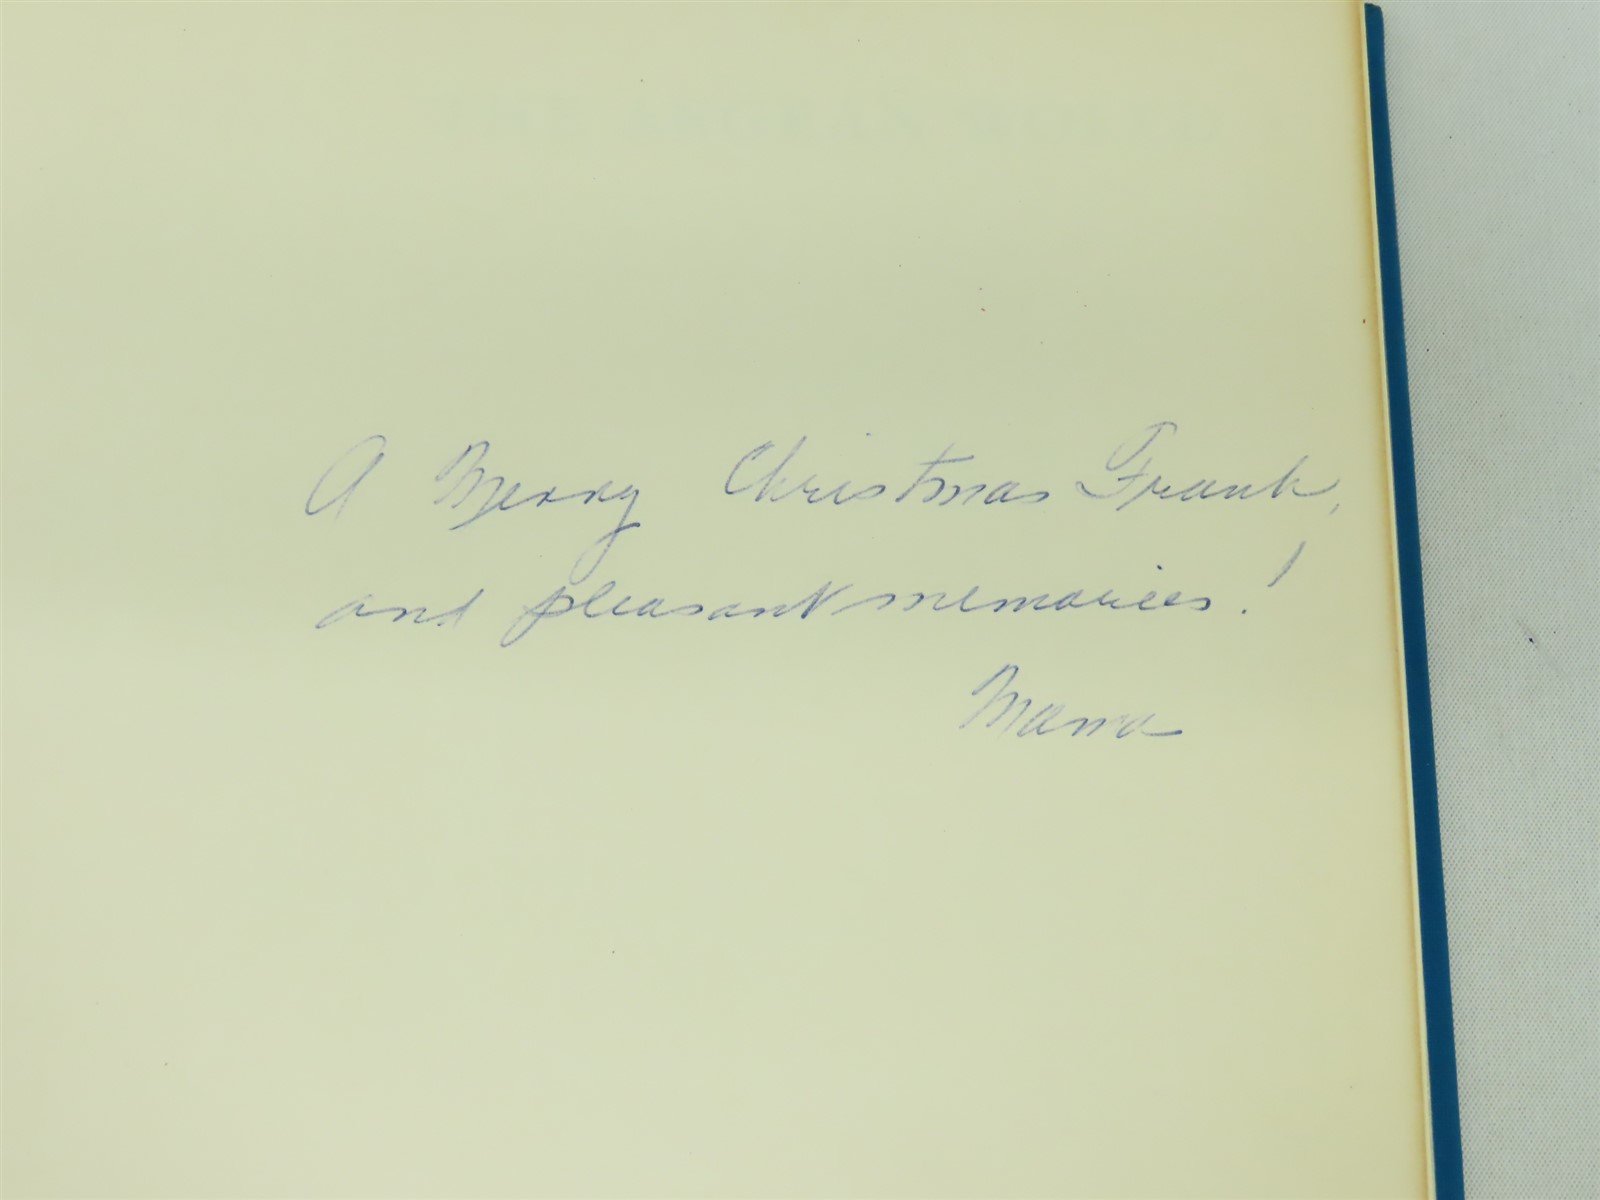 A Merry Christmas Frank,
and pleasant memories!
Mama